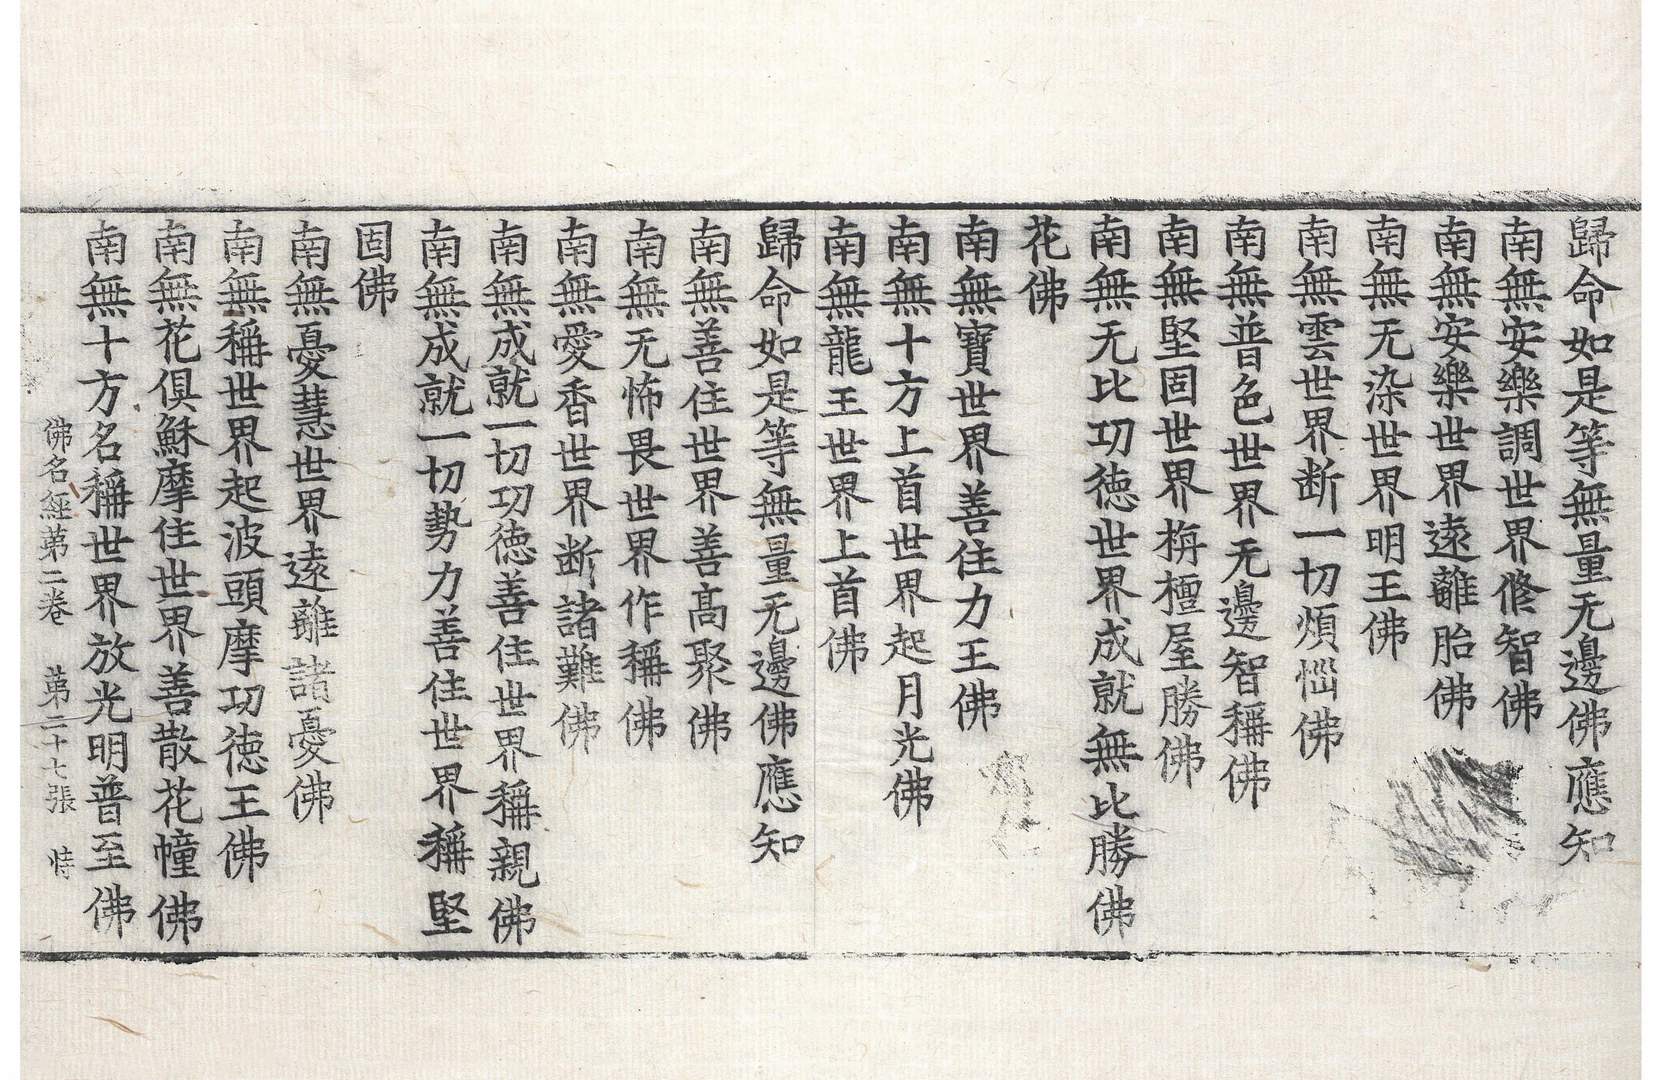 歸命如是等無量无邊佛應知
南無安樂調世界修智佛
南無安樂世界遠離胎佛
南無无染世界明王佛
南無雲世界断一切煩惱佛
南無普色世界无邊智稱佛
南無堅固世界栴檀屋勝佛
南無无比功徳世界成就無比勝佛
花佛
南無寶世界善住力王佛
南無十方上首世界起月光佛
南無龍王世界上首佛
歸命如是等無量无邊佛應知
南無善住世界善高聚佛
南無无怖畏世界作稱佛
南無愛香世界断諸難佛
南無成就一切功徳善住世界稱親佛
南無成就一切勢力善住世界稱堅
固佛
南無憂慧世界遠離諸憂佛
南無稱世界起波頭摩功徳王佛
南無花俱穌摩住世界善散花幢佛
南無十方名稱世界放光明普至佛
佛名經苐二卷 苐二十七張 恃